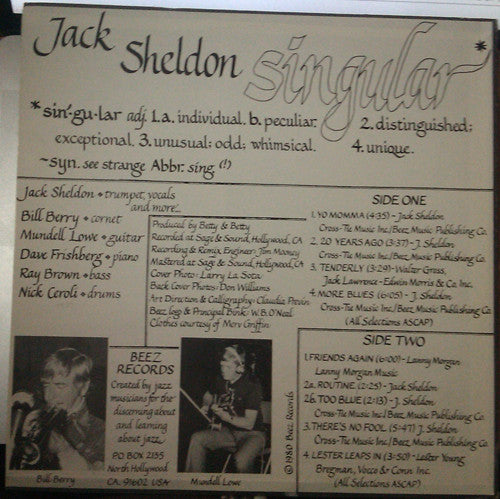 Jack Sheldon singular*
*sin'·gu·lar adj. 1.a. individual. b. peculiar. 2. distinguished;
exceptional. 3. unusual; odd; whimsical. 4. unique.
~syn. see strange Abbr. sing. (!)
Jack Sheldon • trumpet, vocals
and more...
Bill Berry • cornet
Mundell Lowe • guitar
Dave Frishberg • piano
Ray Brown • bass
Nick Ceroli • drums
Produced by Betty & Betty
Recorded at Sage & Sound, Hollywood, CA
Recording & Remix Engineer: Jim Mooney
Mastered at Sage & Sound, Hollywood, CA
Cover Photo: Larry La Sota
Back Cover Photos: Don Williams
Art Direction & Calligraphy: Claudia Previn
Beez logo & Principal Bink: W.B. O'Neal
Clothes courtesy of Merv Griffin
SIDE ONE
1. YO MOMMA (4:35) – Jack Sheldon
Cross-Tie Music Inc./Beez Music Publishing Co.
2. 20 YEARS AGO (3:37) – J. Sheldon
Cross-Tie Music Inc./Beez Music Publishing Co.
3. TENDERLY (3:29) – Walter Gross,
Jack Lawrence – Edwin Morris & Co. Inc.
4. MORE BLUES (6:05) – J. Sheldon
Cross-Tie Music Inc./Beez Music Publishing Co.
(All Selections ASCAP)
SIDE TWO
1. FRIENDS AGAIN (6:00) – Lanny Morgan
Lanny Morgan Music
2a. ROUTINE (2:25) – Jack Sheldon
2b. TOO BLUE (2:13) – J. Sheldon
Cross-Tie Music Inc./Beez Music Publishing Co.
3. THERE'S NO FOOL (5:47) J. Sheldon
Cross-Tie Music Inc./Beez Music Publishing Co.
4. LESTER LEAPS IN (3:50) – Lester Young
Bregman, Vocco & Conn Inc.
(All Selections ASCAP)
BEEZ
RECORDS
Created by jazz
musicians for the
discerning about
and learning
about jazz.
P.O. BOX 2135
North Hollywood
CA. 91602 USA
Bill Berry
Mundell Lowe
© 1980 Beez Records